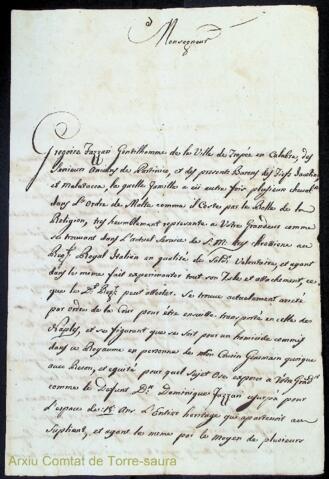 Monseigneur
Gregoire Fazzari Gentilhomme de la Ville de Tropée en Calabre, des
Barons des Fiefs
la quelle famille a eü autre fois plusieurs cheval.rs
dans l'ordre de Malte comme il Conste par les Bulles de la
Religion, tres humblement represente a Votre Grandeur comme
se trouvant dans l'actuel Service de S. M. tres chretiene au
Reg.t Royal Italien en qualité de Sold. Volontaire, et ayant
dans le même fait experimenter tout son Zele et attachement, ce
que le D.t Reg.t peut attester. Se trouve actuelement areté
par ordre de la Cour pour être ensuite transporté en celle de
Naples, et se figurant que ce soit pour un homicide commis
dans ce Royaume en personne de son Cousin Germain
et equité pour quel Sujet Ose exposer à Votre Grand.r
comme le Defunt D.n Dominique Fazzari
l'espace de 18 Ans l'Entier heritage que apartenoit au
Supliant, et ayant le même par le moyen de plusieurs
Arxiu Comtat de Torre-saura